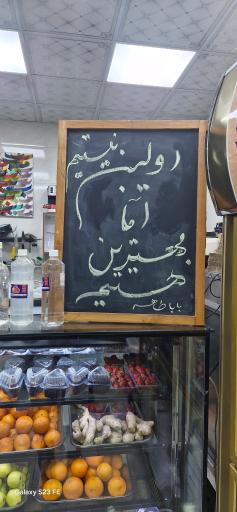 اولین نیستیم
امّا
بهترین
هستیم
بابا طاهر
Galaxy S23 FE